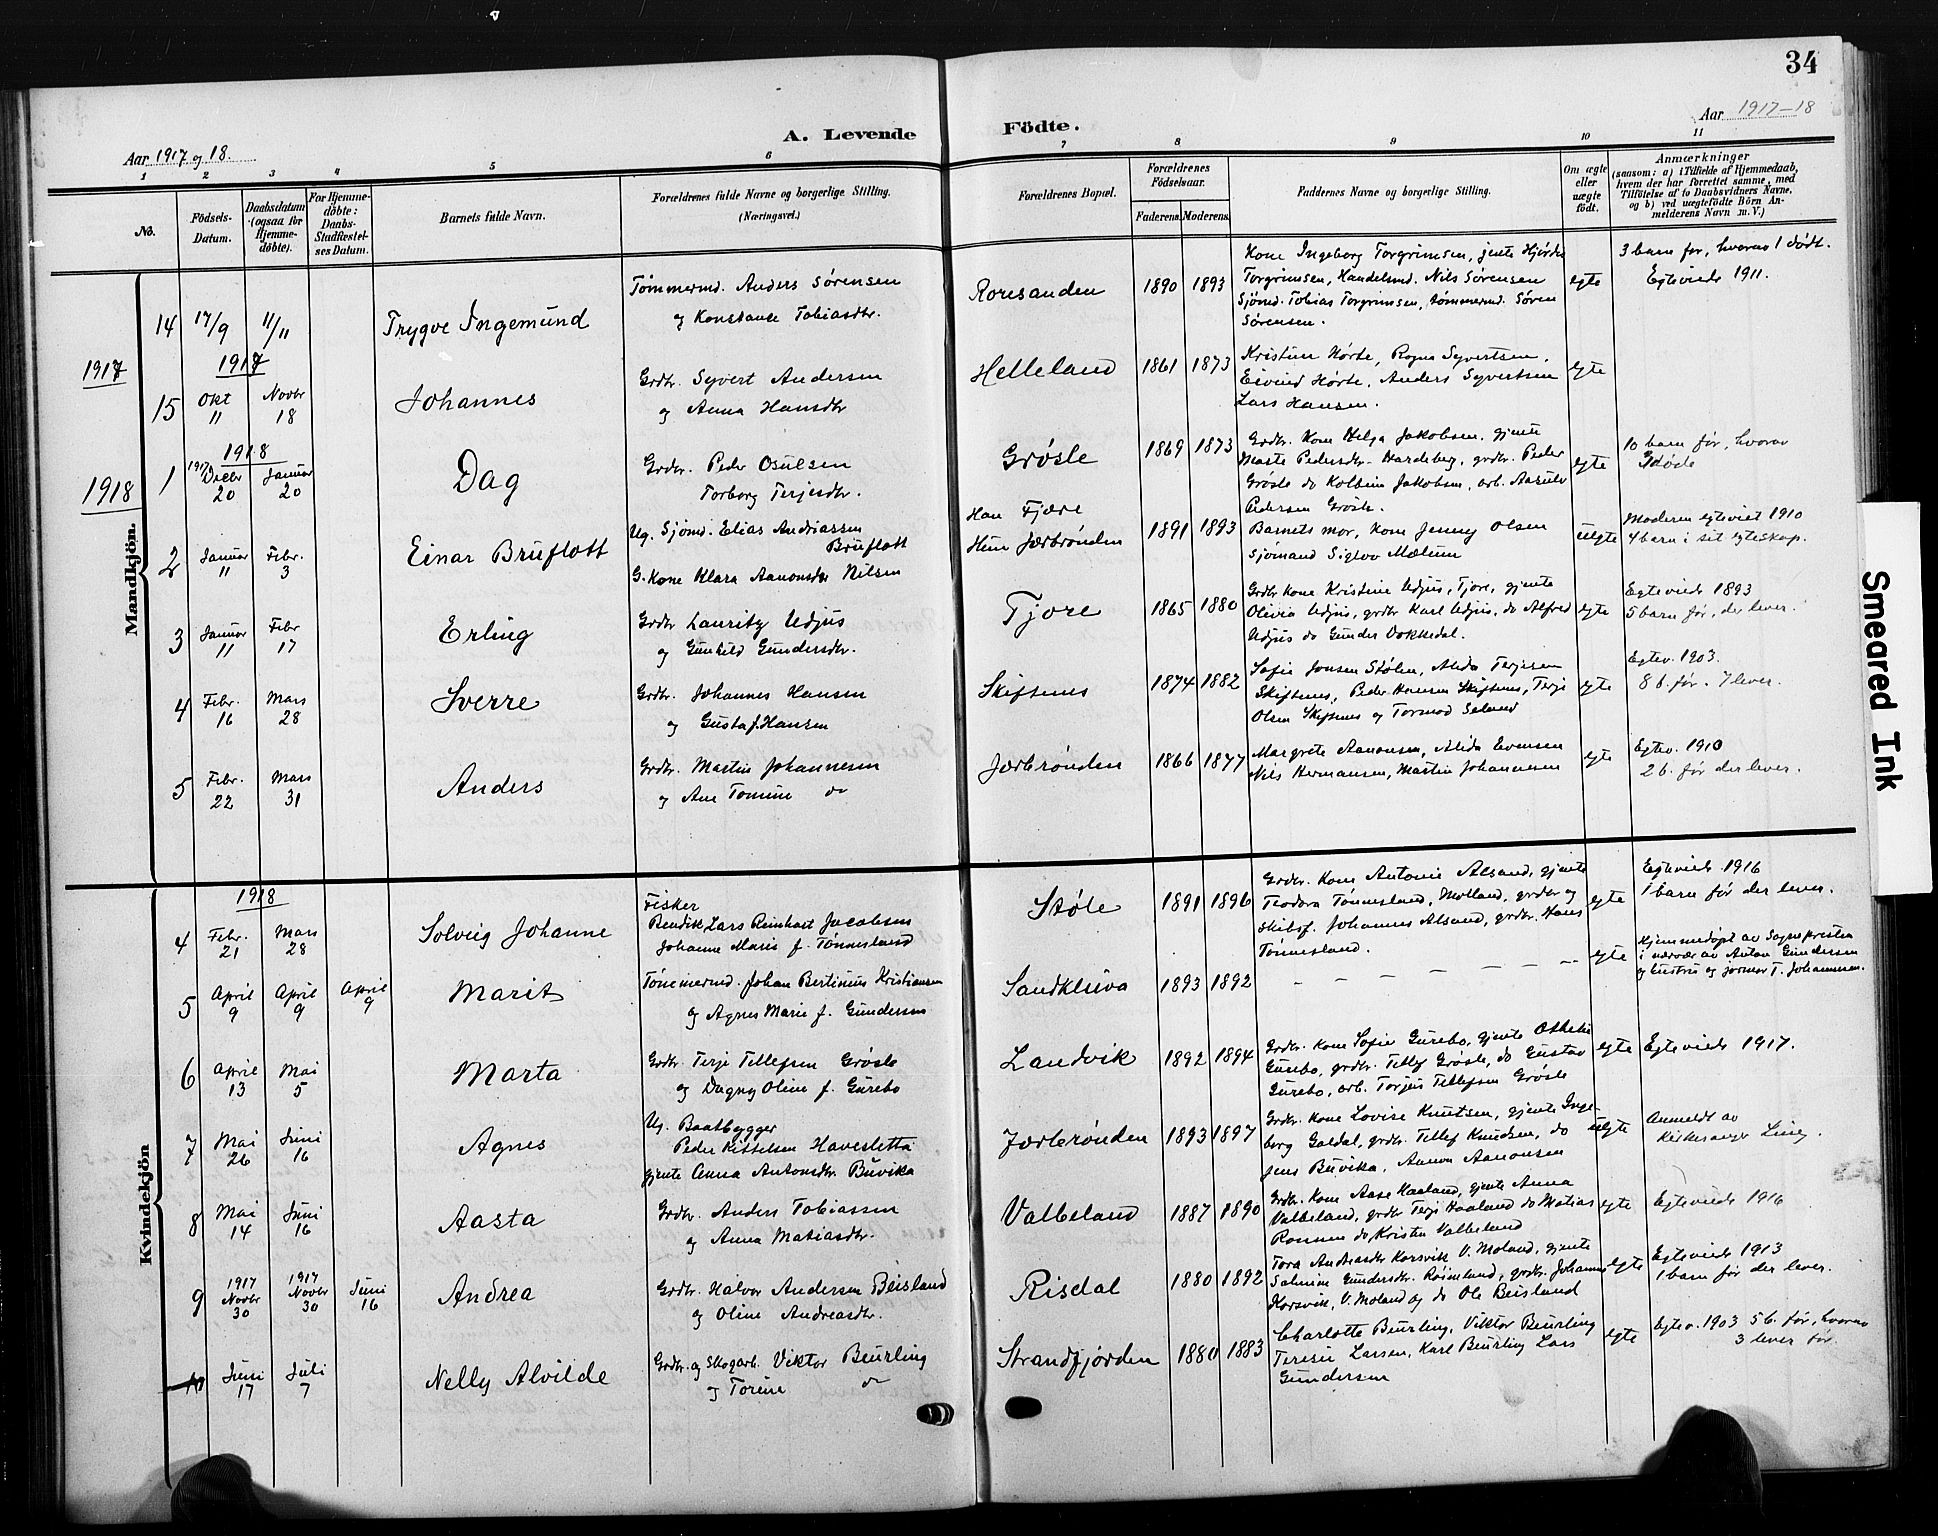 34
A. Levende Födte.
Aar 1917 og 18.
Aar 1917–18
1 2 3 4 5 6 7 8 9 10 11
No.
Födsels-Datum.
Daabsdatum (ogsaa for Hjemme-döbte).
For Hjemme-döbte: Daabs-Stadfæstel-ses Datum.
Barnets fulde Navn.
Forældrenes fulde Navne og borgerlige Stilling.
(Næringsvei.)
Forældrenes Bopæl.
Forældrenes Födselsaar.
Faderens. Moderens.
Faddernes Navne og borgerlige Stilling.
Om ægte eller uægte født.
Anmærkninger
(saasom: a) i Tilfælde af Hjemmedaab,
hvem der har forrettet samme, med
Tilföielse af to Daabsvidners Navne,
og b) ved uægtefödte Börn An-
melderens Navn m. V.)
Mandkjön.
1917
14 17/9 11/11 Trygve Ingemund
Tømmermd. Anders Sørensen
og Konstance Tobiasdtr.
Roresanden 1890 1893
Kone Ingeborg Torgrimsen, jente Hjørdis
Torgrimsen, Handelsmd. Nils Sørensen
Sjömd. Tobias Torgrimsen, tømmermd. Søren
Sørensen.
egte
3 barn før, hvorav 1 dödt.
Egteviede 1911.
1917
15 Okt 11 Novbr 18 Johannes
Grdbr. Syvert Andersen
og Anna Hansdtr
Helleland 1861 1873
Kristine Hørte, Ragna Syvertsen,
Eivind Hørte, Anders Syvertsen
Lars Hansen.
egte
1918
1918
1 1917 Decbr 20 Januar 20 Dag
Grdbr. Peder Osulsen
Torborg Terjesdtr.
Grøsle 1869 1873
Grdbr. Kone Helga Jakobsen, gjente
Marte Pedersdtr. Hardeberg, grdbr. Peder
Grøsle do Kolbein Jakobsen, arb. Aasulv
Pedersen Grøsle.
egte
10 barn før, hvorav
døde
2 Januar 11 Febr. 3 Einar Bruflott
Ug. Sjømd. Elias Andriassen
Bruflott
G. Kone Klara Aanonsdtr Nilsen
Han Fjære
Hun Jærbrønden 1891 1893
Barnets mor, Kone Jenny Olsen
Sjömand Sigtov Mælum
uegte
Moderen egteviet 1910
4 barn i sit egteskap.
3 Januar 11 Febr 17 Erling
Grdbr Lauritz Udjus
og Gunhild Gundersdtr.
Tjore 1865 1880
Grdbr Kone Kristine Udjus, Tjore, gjente
Olivia Udjus, grdbr Karl Udjus, do Alfred
Udjus do Gunder Vokkedal.
egte
Egteviede 1893
5 barn før, der lever.
4 Febr. 16 Mars 28 Sverre
Grdbr. Johannes Hansen
og Gusta f. Hansen
Skiftenes 1874 1882
Sofie Jonsen Stølen, Alida Terjesen
Skiftenes, Peder Hansen Skiftenes, Terje
Olsen Skiftenes og Tormod Seland
egte
Egtev. 1903.
8 b. før. 7 lever.
5 Febr. 22 Mars 31 Anders
Grdbr. Martin Johannesen
og Ane Tomine do
Jærbrønden 1866 1877
Margrete Aanonsen, Alida Evensen
Nils Hermansen, Martin Johannesen
egte
Egtev. 1910
2 b. før der lever.
Kvindekjön
1918
4 Febr. 21 Mars 28 Solveig Johanne
Fisker
Bendik Lars Reinhart Jacobsen
Johanne Marie f. Tønnesland
Støle 1891 1896
Grdbr. Kone Antonie Alsand, gjente
Teodora Tønnesland, Molland, grdbr og
skibsf. Johannes Alsand, grdbr. Hans
Tønnesland.
egte
Egteviede 1916
1 barn før der lever.
5 April 9 April 9 April 9 Marit
Tømmermd. Johan Bertinius Kristiansen
og Agnes Marie f. Gundersen
Sandkleiva 1893 1892
– – – – – –
egte
Hjemmedøpt av Sognepresten
i nærvær av Anton Gundersen
og hustru og jormor T. Johannesen.
6 April 13 Mai 5 Marta
Grdbr. Terje Tellefsen Grøsle
og Dagny Oline f. Gurebo
Landvik 1892 1894
Grdbr. Kone Sofie Gurebo, gjente Othelie
Gurebo, grdbr. Tellef Grøsle, do Gustav
Gurebo, arb. Torjus Tellefsen Grøsle
egte
Egteviede 1917.
7 Mai 26 Juni 16 Agnes
Ug. Baatbygger
Peder Kittelsen Havesletta
gjente Anna Antonsdtr Buvika
Jærbrønden 1893 1897
Grdbr. Kone Lovise Knutsen, gjente Inge-
borg Gardal, grdbr. Tellef Knudsen, do
Jens Buvika, Aanon Aanonsen
uegte
Anmeldt av
Kirkesanger Liung.
8 Mai 14 Juni 16 Aasta
Grdbr. Anders Tobiassen
og Anna Matiasdtr.
Valbeland 1887 1890
Grdbr. Kone Aase Haaland, gjente Anna
Valbeland, grdbr Terje Haaland do Matias
do Kristen Valbeland
egte
Egteviede 1916
9 1917 Novbr 30 1917 Novbr 30 Juni 16 Andrea
Grdbr. Halvor Andersen Beisland
og Oline Andreasdtr.
Risdal 1880 1892
Tora Andreasdtr Korsvik V. Moland, gjente
Salmine Gundersdtr. Roimland, grdbr. Johannes
Korsvik, V. Moland og do Ole Beisland
egte
Egteviede 1913
1 barn før der lever.
10 Juni 17 Juli 7 Nelly Alvilde
Grdbr. og Skogarb. Viktor Beurling
og Torine do
Strandfjorden 1880 1883
Charlotte Beurling, Viktor Beurling
Terese Larsen, Karl Beurling Lars
Gundersen
egte
Egtev. 1903 5 b. før, hvorav
3 lever før.
Smeared Ink